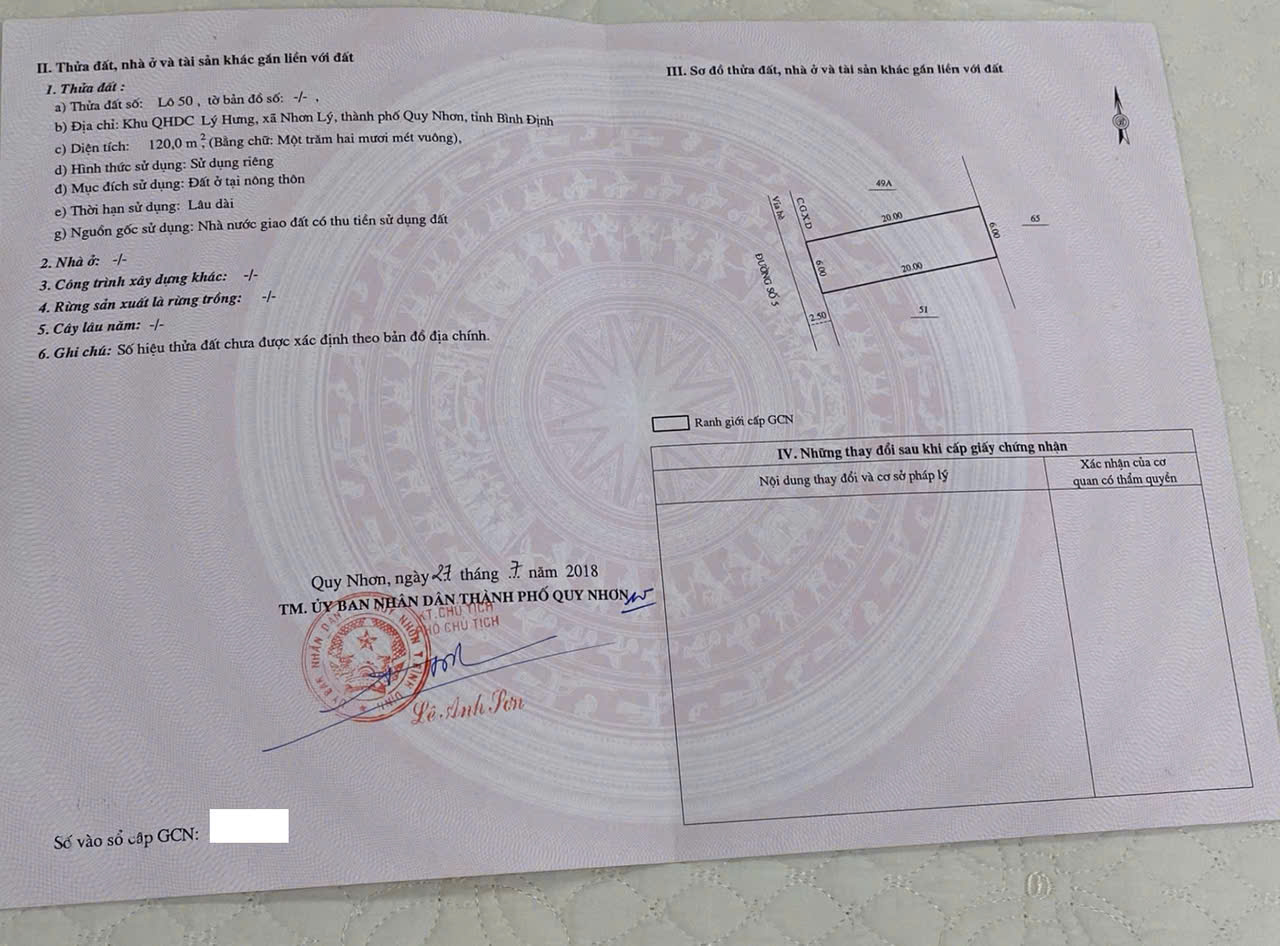 II. Thửa đất, nhà ở và tài sản khác gắn liền với đất
1. Thửa đất :
a) Thửa đất số: Lô 50 , tờ bản đồ số: -/- ,
b) Địa chỉ: Khu QHDC Lý Hưng, xã Nhơn Lý, thành phố Quy Nhơn, tỉnh Bình Định
c) Diện tích: 120,0 m², (Bằng chữ: Một trăm hai mươi mét vuông),
d) Hình thức sử dụng: Sử dụng riêng
đ) Mục đích sử dụng: Đất ở tại nông thôn
e) Thời hạn sử dụng: Lâu dài
g) Nguồn gốc sử dụng: Nhà nước giao đất có thu tiền sử dụng đất
2. Nhà ở: -/-
3. Công trình xây dựng khác: -/-
4. Rừng sản xuất là rừng trồng: -/-
5. Cây lâu năm: -/-
6. Ghi chú: Số hiệu thửa đất chưa được xác định theo bản đồ địa chính.
Quy Nhơn, ngày 27 tháng 7 năm 2018
TM. ỦY BAN NHÂN DÂN THÀNH PHỐ QUY NHƠN
KT.CHỦ TỊCH
PHÓ CHỦ TỊCH
Lê Anh Sơn
Số vào sổ cấp GCN:
III. Sơ đồ thửa đất, nhà ở và tài sản khác gắn liền với đất
49A
65
51
20.00
6.00
20.00
6.00
2.50
Vỉa hè
C.G.X.D
ĐƯỜNG SỐ 5
Ranh giới cấp GCN
IV. Những thay đổi sau khi cấp giấy chứng nhận
Nội dung thay đổi và cơ sở pháp lý
Xác nhận của cơ
quan có thẩm quyền